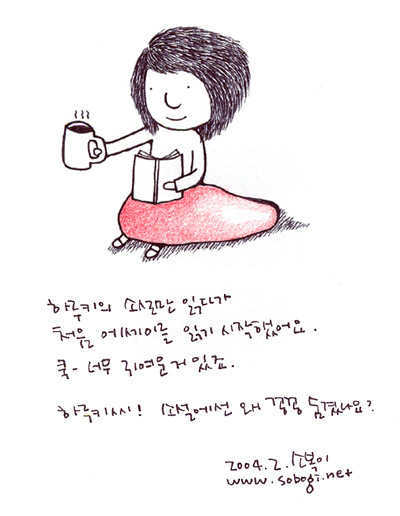 하루키의 소설만 읽다가
처음 에세이를 읽기 시작했어요.
쿡- 너무 귀여운거 있죠.
하루키씨! 소설에선 왜 꽁꽁 숨겼나요?
2004. 2. 소보기
www.sobogi.net